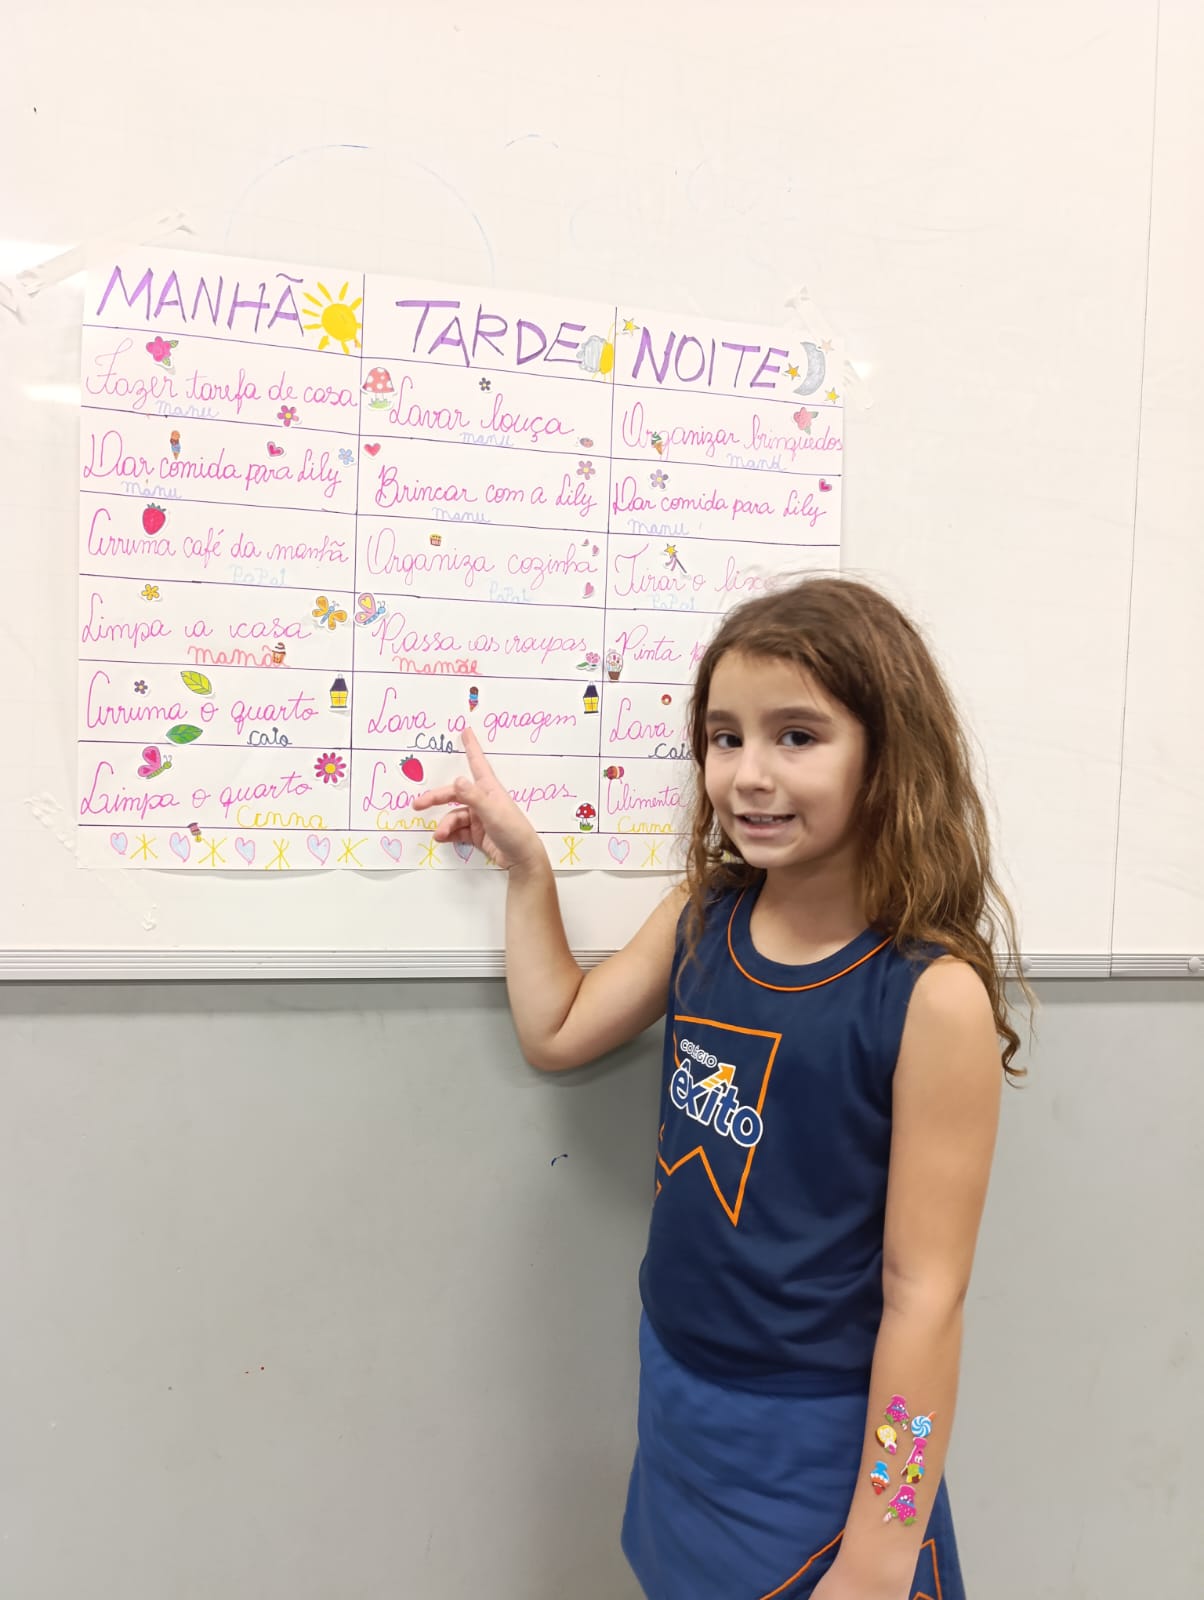 MANHÃ
TARDE
NOITE
Fazer tarefa de casa
manu
Lavar louça
manu
Organizar brinquedos
manu
Dar comida para Lily
manu
Brincar com a Lily
manu
Dar comida para Lily
manu
Arruma café da manhã
PaPai
Organiza cozinha
PaPai
Tirar o lixo
PaPai
Limpa a casa
mamãe
Passa as roupas
mamãe
Pinta
Arruma o quarto
caio
Lava a garagem
caio
Lava
caio
Limpa o quarto
Anna
roupas
Anna
Alimenta
Anna
COLÉGIO
êxito